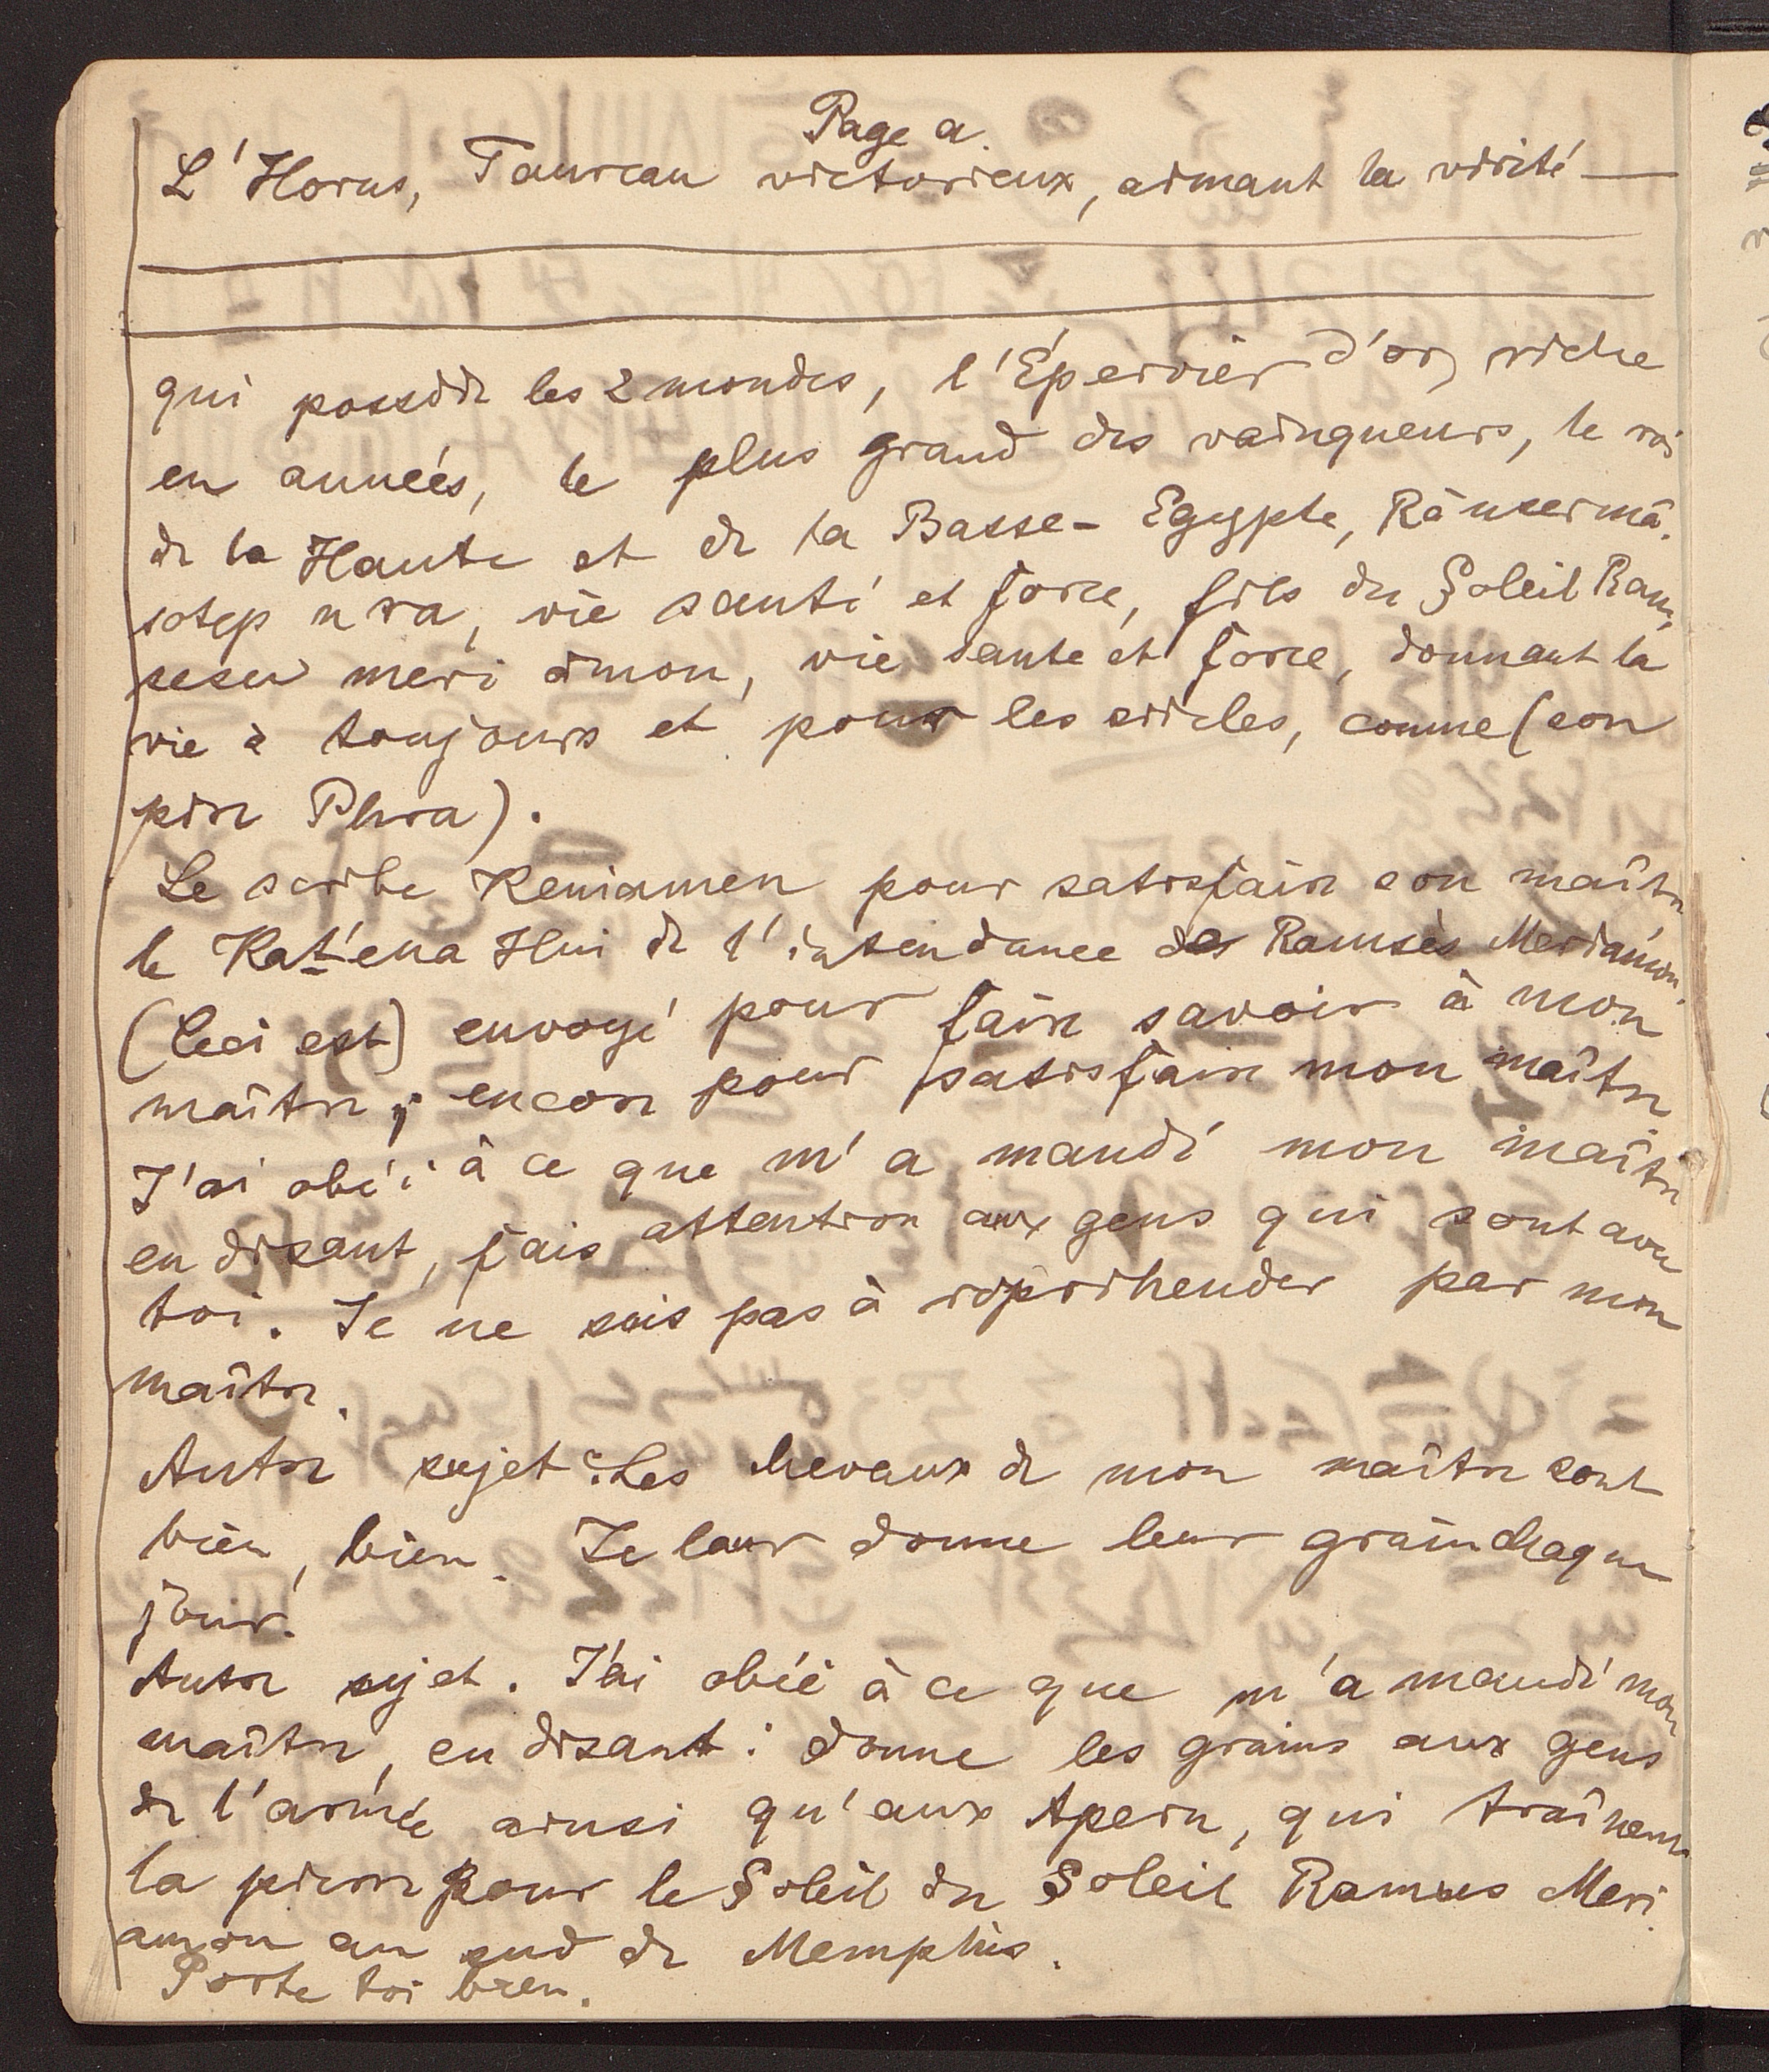 Page a.
L'Horus, Taureau victorieux, aimant la vérité —
qui possède les 2 mondes, l'Épervier d'or, riche
en années, le plus grand des vainqueurs, le roi
de la Haute et de la Basse-Egypte, Râusermâ.
sotep n ra, vie santé et force, fils du Soleil Ram,
sesu meri amon, vie sante et force, donnant la
vie à toujours et pour les siècles, comme (son
père Phra).
Le scribe Keniamen pour satisfaire son maître
le Kat'ena Hui de l'intendance des Ramsès Meriamon.
(Ceci est) envoyé pour faire savoir à mon
maître; encore pour satisfaire mon maître
J'ai obéi à ce que m'a mandé mon maître
en disant, fais attention aux gens qui sont avec
toi. Je ne suis pas à répréhender par mon
maître.
Autre sujet: Les chevaux de mon maître sont
bien, bien. Je leur donne leur grain chaque
jour.
Autre sujet. J'ai obéi à ce que m'a mandé mon
maître, en disant: donne les grains aux gens
de l'armée ainsi qu'aux Aperu, qui traînent
la pierre pour le Soleil du Soleil Ramses Meri.
amon au sud de Memphis.
Porte toi bien.